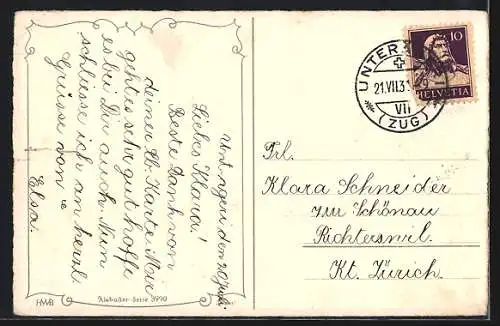 Unt. ägeri den 20. Juli.
Liebes Klara!
Beste Dank von
deiner lb. Karte. Mir
geht es sehr gut hoffe
es bei Dir auch. Nun
schliesse ich an herzl.
Grüsse von
Elsa.
HWB
Alabaster-Serie 3990
UNTER
21.VII.3
VII
(ZUG)
10
HELVETIA
Frl.
Klara Schneider
zur Schönau
Richterswil.
Kt. Zürich.